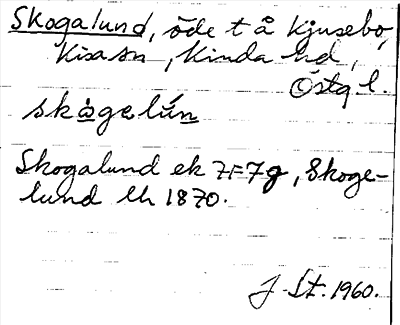 Skogalund, öde t å Kjusebo,
Kisa sn, Kinda hd,
Östg l.
skågelún
Skogalund ek 7F7g, Skoge-
lund lh 1870.
J. St. 1960.